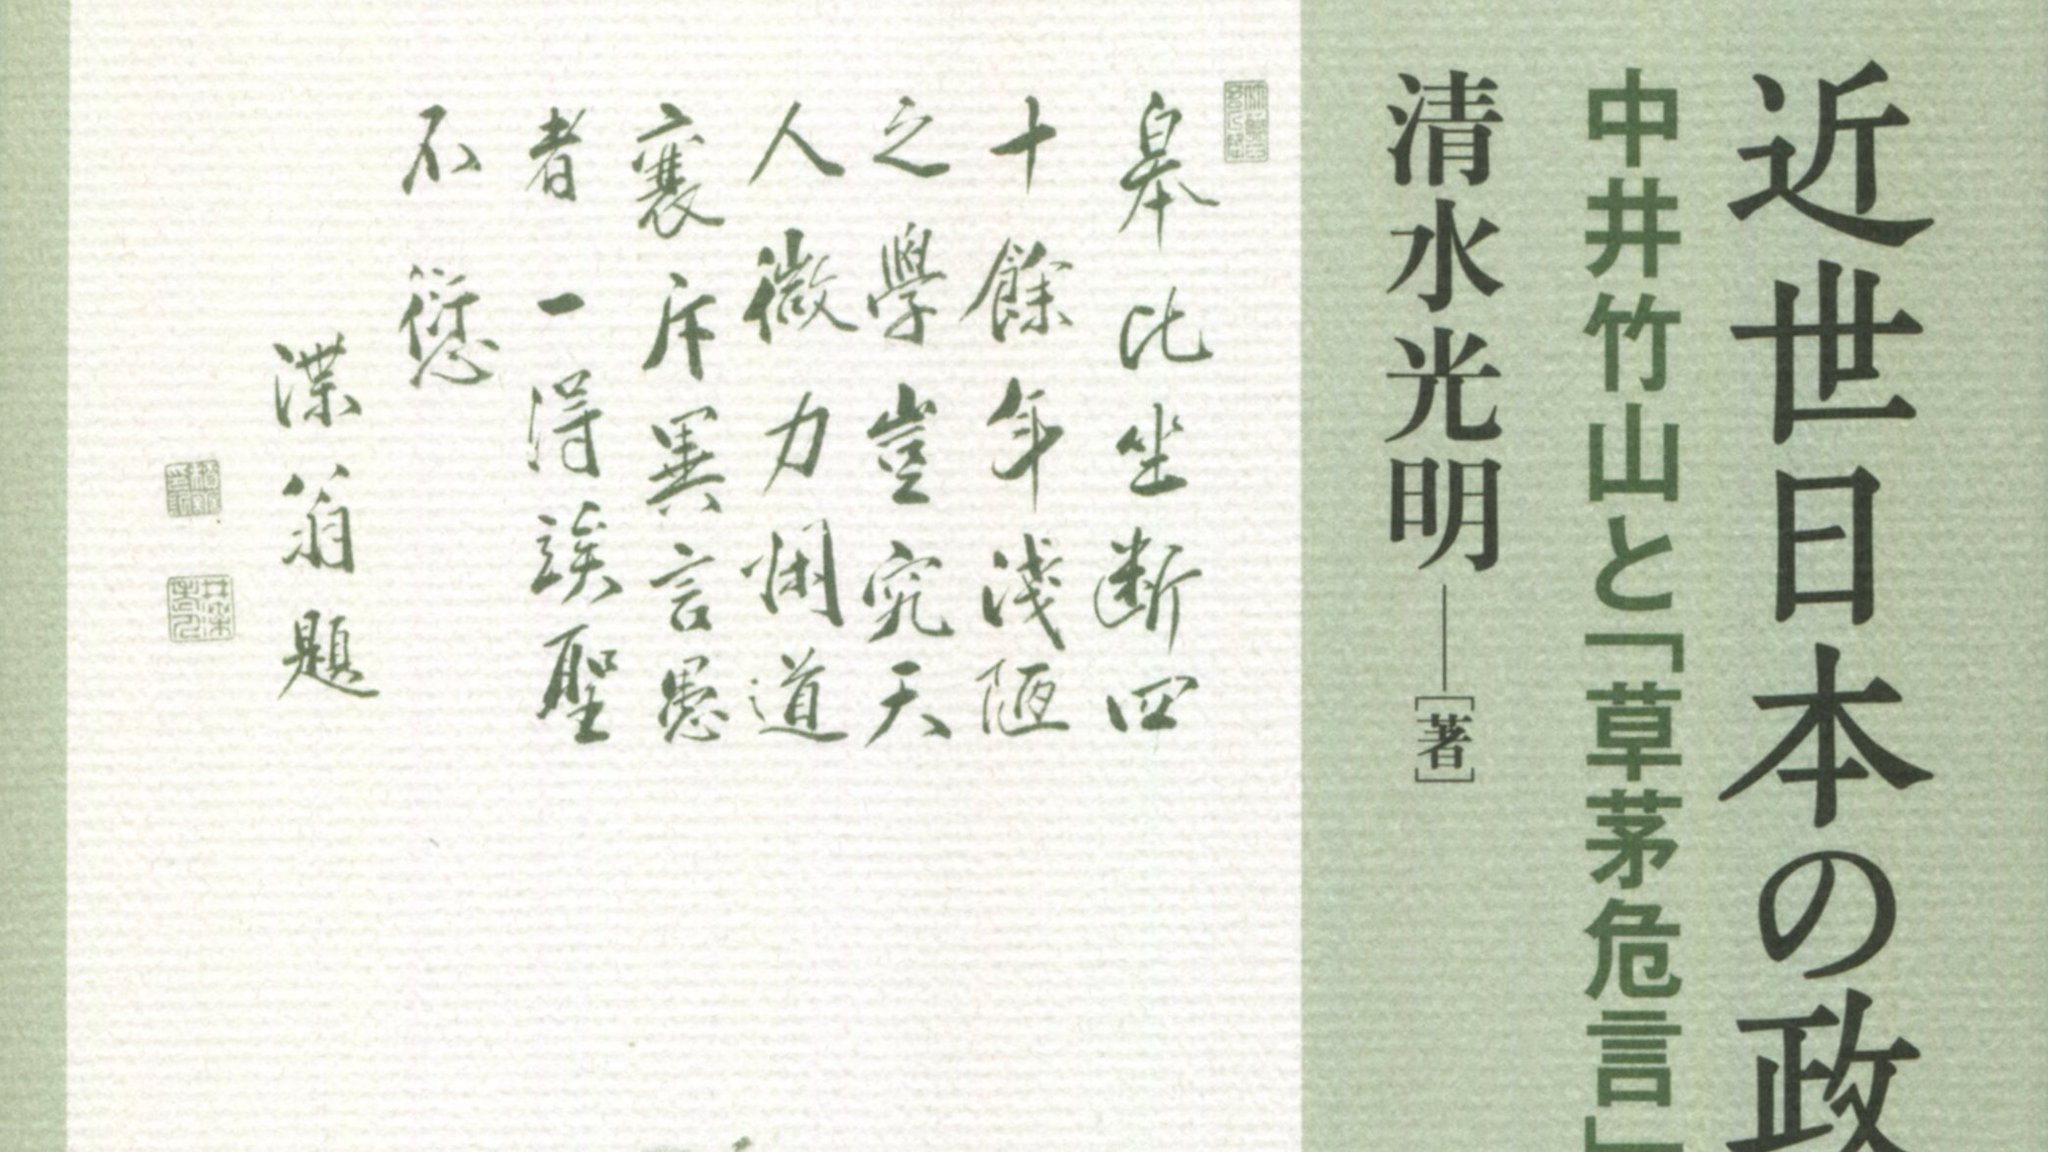 近世日本の政
中井竹山と「草茅危言」
清水光明――[著]
皋比坐断四
十餘年淺陋
之學豈究天
人微力閑道
襄斥異言愚
者一得誒聖
不愆
渫翁題